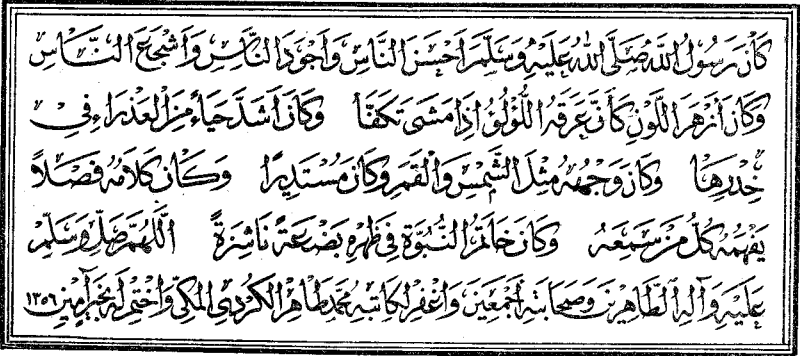 كَانَ رَسُولُ اللَّهِ صَلَّى اللهُ عَلَيْهِ وَسَلَّمَ أَحْسَنَ النَّاسِ وَأَجْوَدَ النَّاسِ وَأَشْجَعَ النَّاسِ
وَكَانَ أَزْهَرَ اللَّوْنِ كَأَنَّ عَرَقَهُ اللُّؤْلُؤُ إِذَا مَشَى تَكَفَّأَ وَكَانَ أَشَدَّ حَيَاءً مِنَ الْعَذْرَاءِ فِي
خِدْرِهَا وَكَانَ وَجْهُهُ مِثْلَ الشَّمْسِ وَالْقَمَرِ وَكَانَ مُسْتَدِيرًا وَكَانَ كَلَامُهُ فَصْلًا
يَفْهَمُهُ كُلُّ مَنْ سَمِعَهُ وَكَانَ خَاتَمُ النُّبُوَّةِ فِي ظَهْرِهِ بَضْعَةً نَاشِزَةً اَللَّهُمَّ صَلِّ وَسَلِّمْ
عَلَيْهِ وَآلِهِ الطَّاهِرِينَ وَصَحَابَتِهِ أَجْمَعِينَ وَاغْفِرْ لِكَاتِبِهِ مُحَمَّد طَاهِر الْكُرْدِي الْمَكِّي وَاخْتِمْ لَهُ بِخَيْرٍ آمِين ١٣٥٦